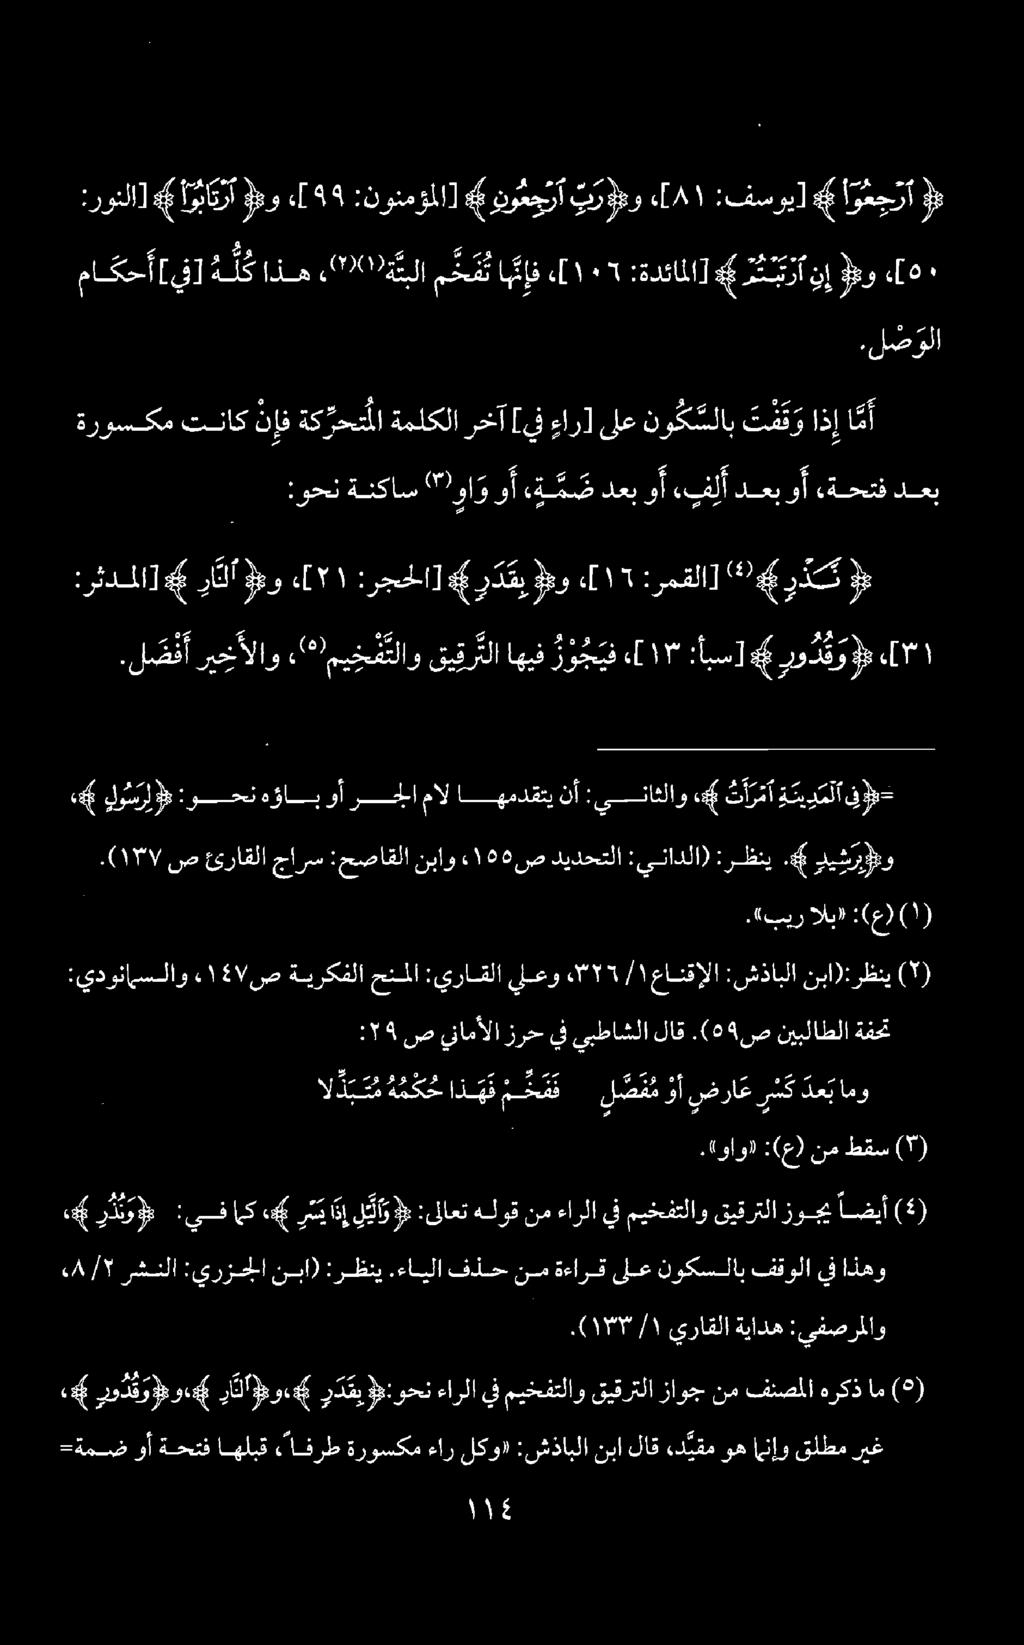 ﴿ ٱرْجِعُوٓا۟ ﴾ [يوسف: ٨١]، و﴿رَبِّ ٱرْجِعُونِ﴾ [المؤمنون: ٩٩]، و﴿ ٱرْتَابُوٓا۟ ﴾ [النور:
٥٠]، و﴿ إِنِ ٱرْتَبْتُمْ ﴾ [المائدة: ١٠٦]، فإنَّها تُفَخَّم البتَّة(١)(٢)، هـذا كُلُّـهُ [في] أحكـام
الوَصْل.
أمَّا إذا وَقَفْتَ بالسُّكُون على [راءٍ في] آخر الكلمة المُتحرِّكة فإنْ كانـت مكـسورة
بعـد فتحـة، أو بعـد ألِفٍ، أو بعد ضَمَّـةٍ، أو وَاوٍ(٣) ساكنـة نحو:
﴿ نَـذَرِ ﴾(٤) [القمر: ١٦]، و﴿بِقَدَرٍ﴾ [الحجر: ٢١]، و﴿ ٱلنَّارِ ﴾ [المدثر:
٣١]، ﴿وَقُدُورٍ﴾ [سبأ: ١٣]، فيَجُوْزُ فيها التَّرقيق والتَّفْخيم(٥)، والأَخير أَفْضَل.
=﴿فِى ٱلْمَدِينَةِ ٱمْرَأَتُ ﴾، والثانـي: أن يتقدمهـا لام الجـر أو بـاؤه نحـو: ﴿لِرَسُولٍ ﴾،
و﴿بِرَشِيدٍ ﴾. ينظـر: (الدانـي: التحديد ص١٥٥، وابن القاصح: سراج القارئ ص ١٣٧).
(١) (ع): «بلا ريب».
(٢) ينظر: (ابن الباذش: الإقنـاع١/ ٣٢٦، وعلـي القـاري: المـنح الفكريـة ص١٤٧، والـسمانودي:
تحفة الطالبين ص٥٩). قال الشاطبي في حرز الأماني ص ٢٩:
وما بَعدَ كَسْرٍ عَارِضٍ أوْ مُفَصَّلٍ فَفَخِّـمْ فَهَـذا حُكْمُهُ مُتَـبَذِّلا
(٣) سقط من (ع): «واو».
(٤) أيضـاً يجـوز الترقيق والتفخيم في الراء من قولـه تعالى: ﴿وَٱلَّيْلِ إِذَا يَسْرِ ﴾، كما فـي: ﴿وَنُذُرِ ﴾،
وهذا في الوقف بالـسكون علـى قـراءة مـن حـذف اليـاء. ينظـر: (ابـن الجـزري: النـشر ٢/ ٨،
والمرصفي: هداية القاري ١/ ١٣٣).
(٥) ما ذكره المصنف من جواز الترقيق والتفخيم في الراء نحو: ﴿بِقَدَرٍ ﴾،و﴿ٱلنَّارِ ﴾،و﴿وَقُدُورٍ ﴾،
غير مطلق وإنما هو مقيَّد، قال ابن الباذش: «وكل راء مكسورة طرفـاً، قبلهـا فتحـة أو ضـمة=
١١٤